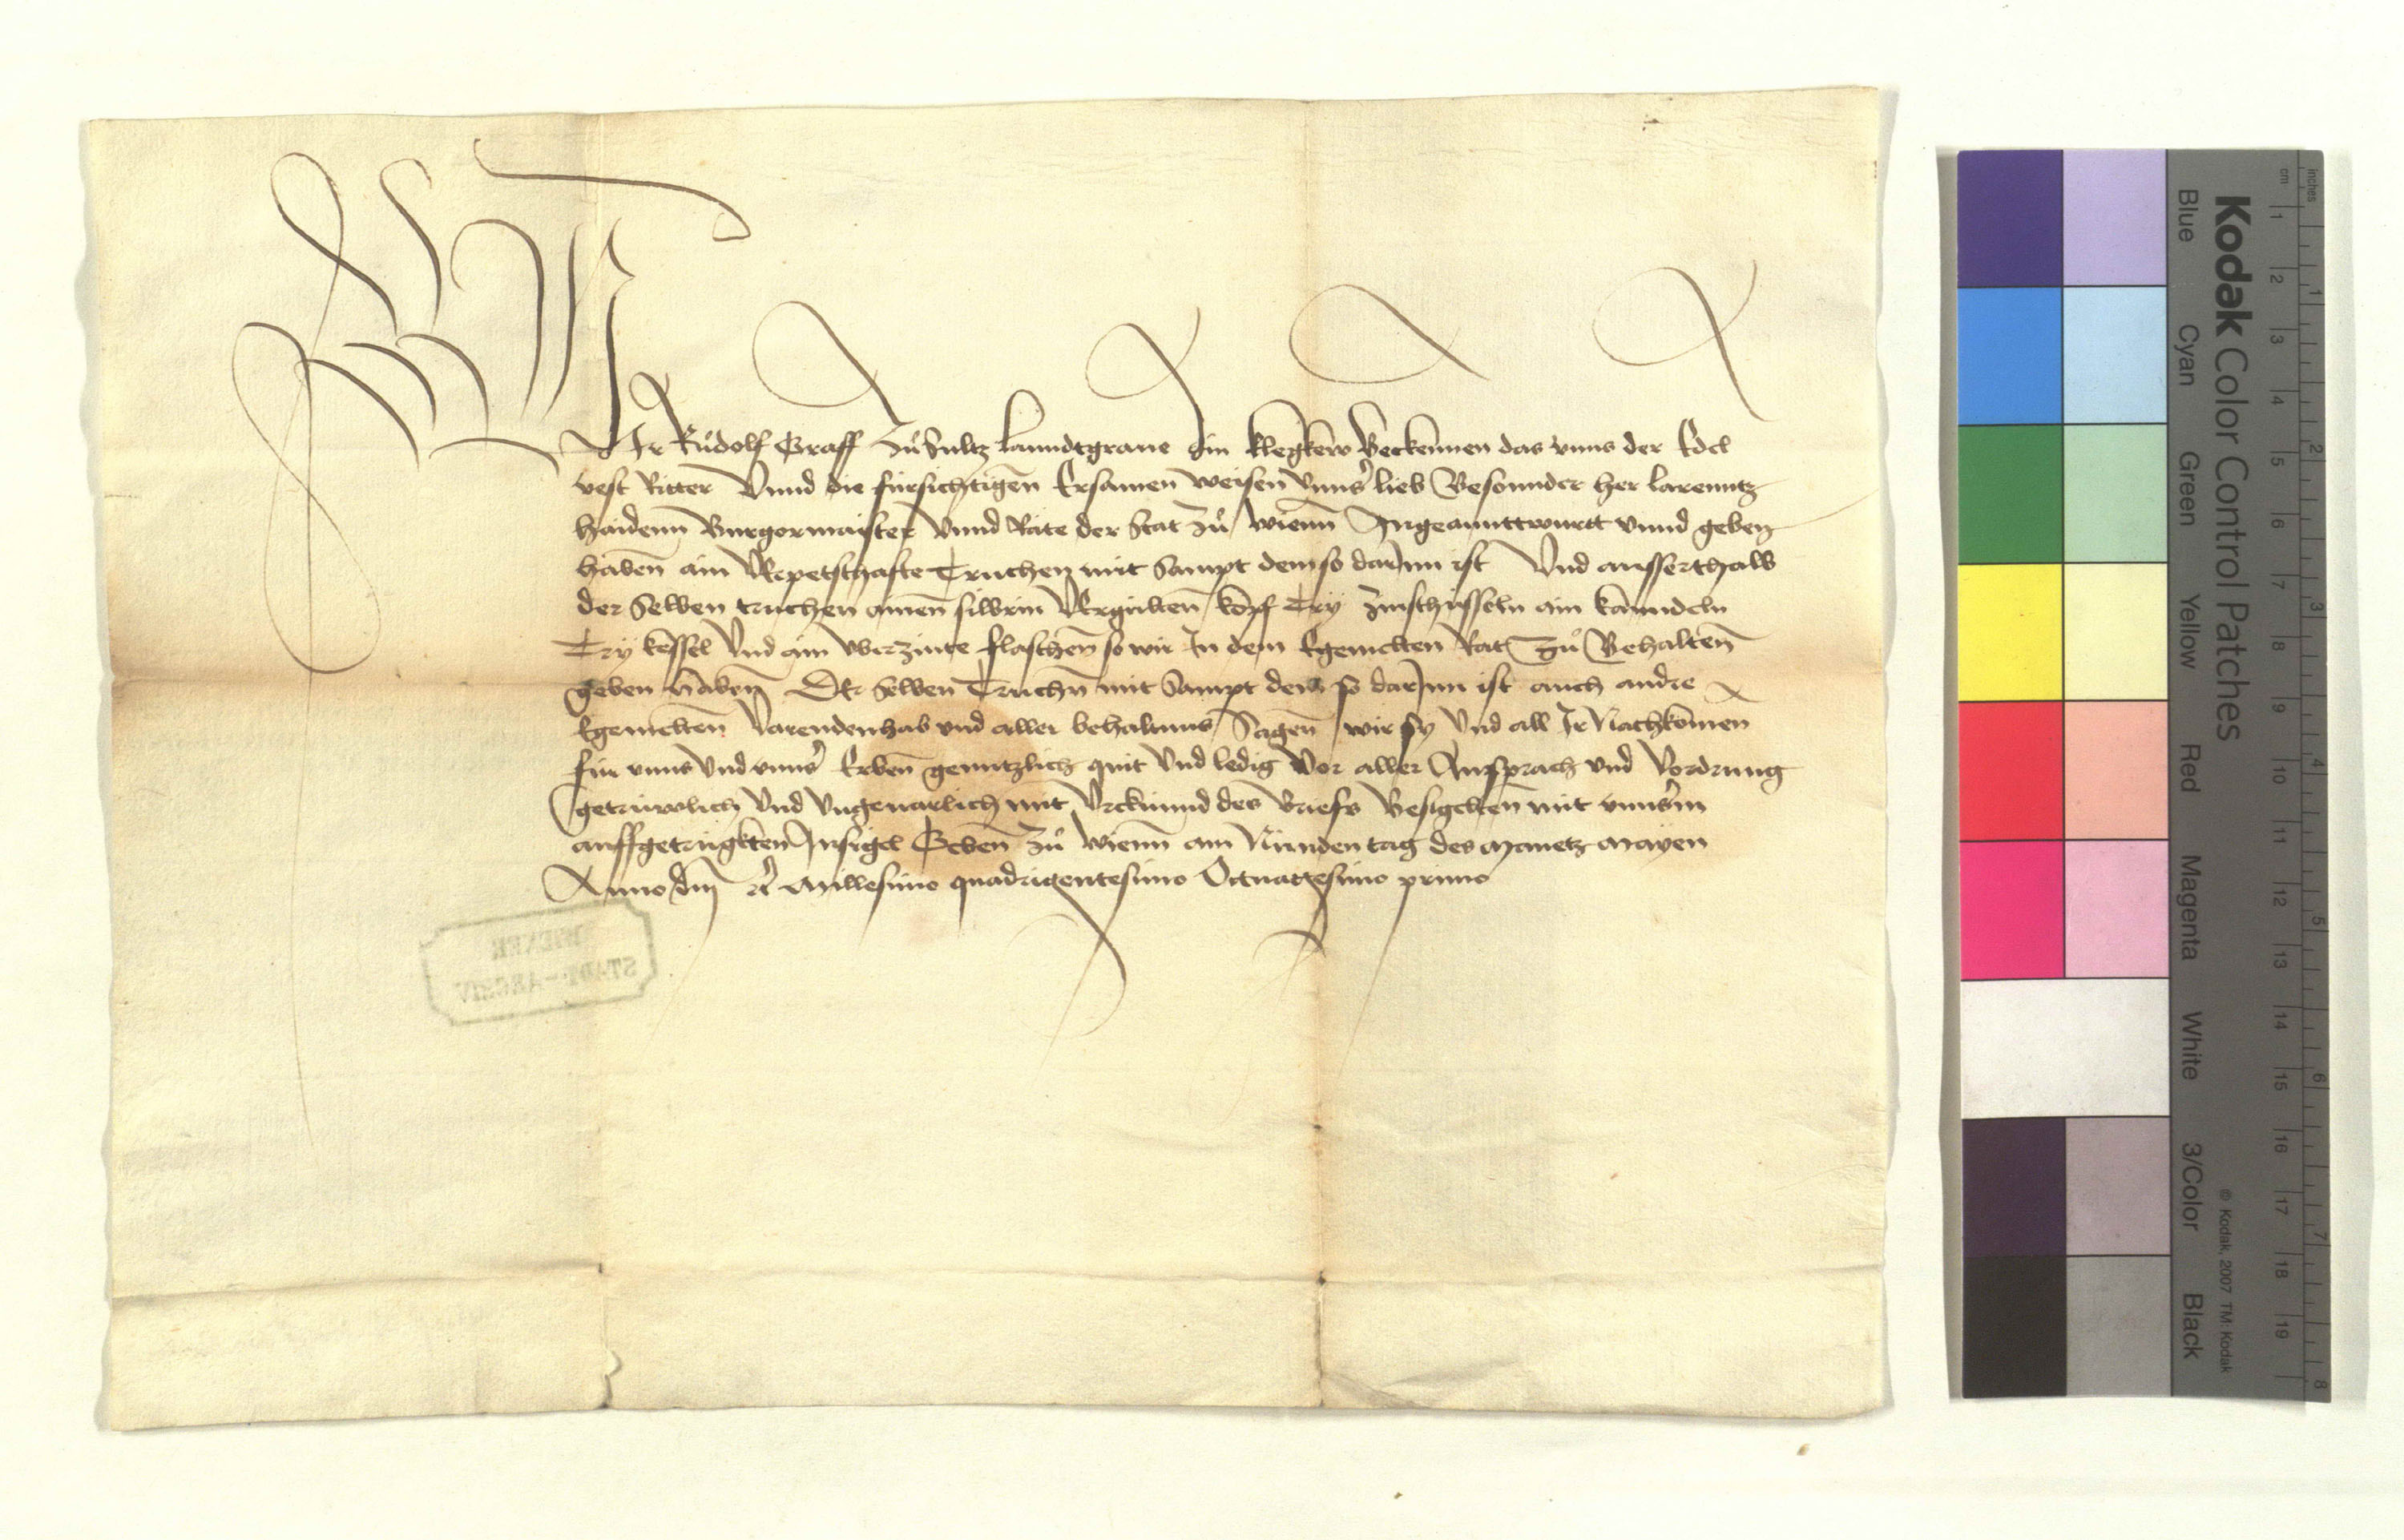 Wir Růdolf Graff zů Sultz Lanndtgraue Im klegkew Beckennen das vnns der Edel
vest Ritter Vnnd die fursichtigen Ersamen weisen vnns' lieb Besonnder her larenntz
haidenn Burgermaister Vnnd Räte der Stat Zů wienn Ingeannttwurtt vnnd geben
haben ain Verpetschafte Truchen mit Sampt dem so darInn ist Vnd ausserthalb
der Selben truchen ainen silbrin Vergulten kopf Try Zinschusseln ain kanndeln
Try kessel Vnd ain vberzinte flaschen so wir In dem Egemelten Rat Zů Behalten
geben haben Der Selben Truchn mit Sampt dem so darInn ist auch andre
Egemelten Varendenhab vnd aller behaltnus Sagen wir sy Vnd all Ir Nachkomen
fur vnns Vnd vnns' Erben genntzlich quit Vnd ledig Vor aller Ansprach vnd Vordrung
getruwlich Vnd Vngeuarlich mit Vrckunnd des Briefs Besigelten mit vnns'm
auffgetrugkten Insigel Geben Zů wienn am Nunden tag des Manetz Mayen
Anno dm̄ rc̄ Millesimo quadrigentesimo Octuagesimo primo
WIENER
STADT-ARCHIV
Kodak Color Control Patches
Blue Cyan Green Yellow Red Magenta White 3/Color Black
© Kodak, 2007 TM: Kodak
inches 1 2 3 4 5 6 7 8
cm 1 2 3 4 5 6 7 8 9 10 11 12 13 14 15 16 17 18 19